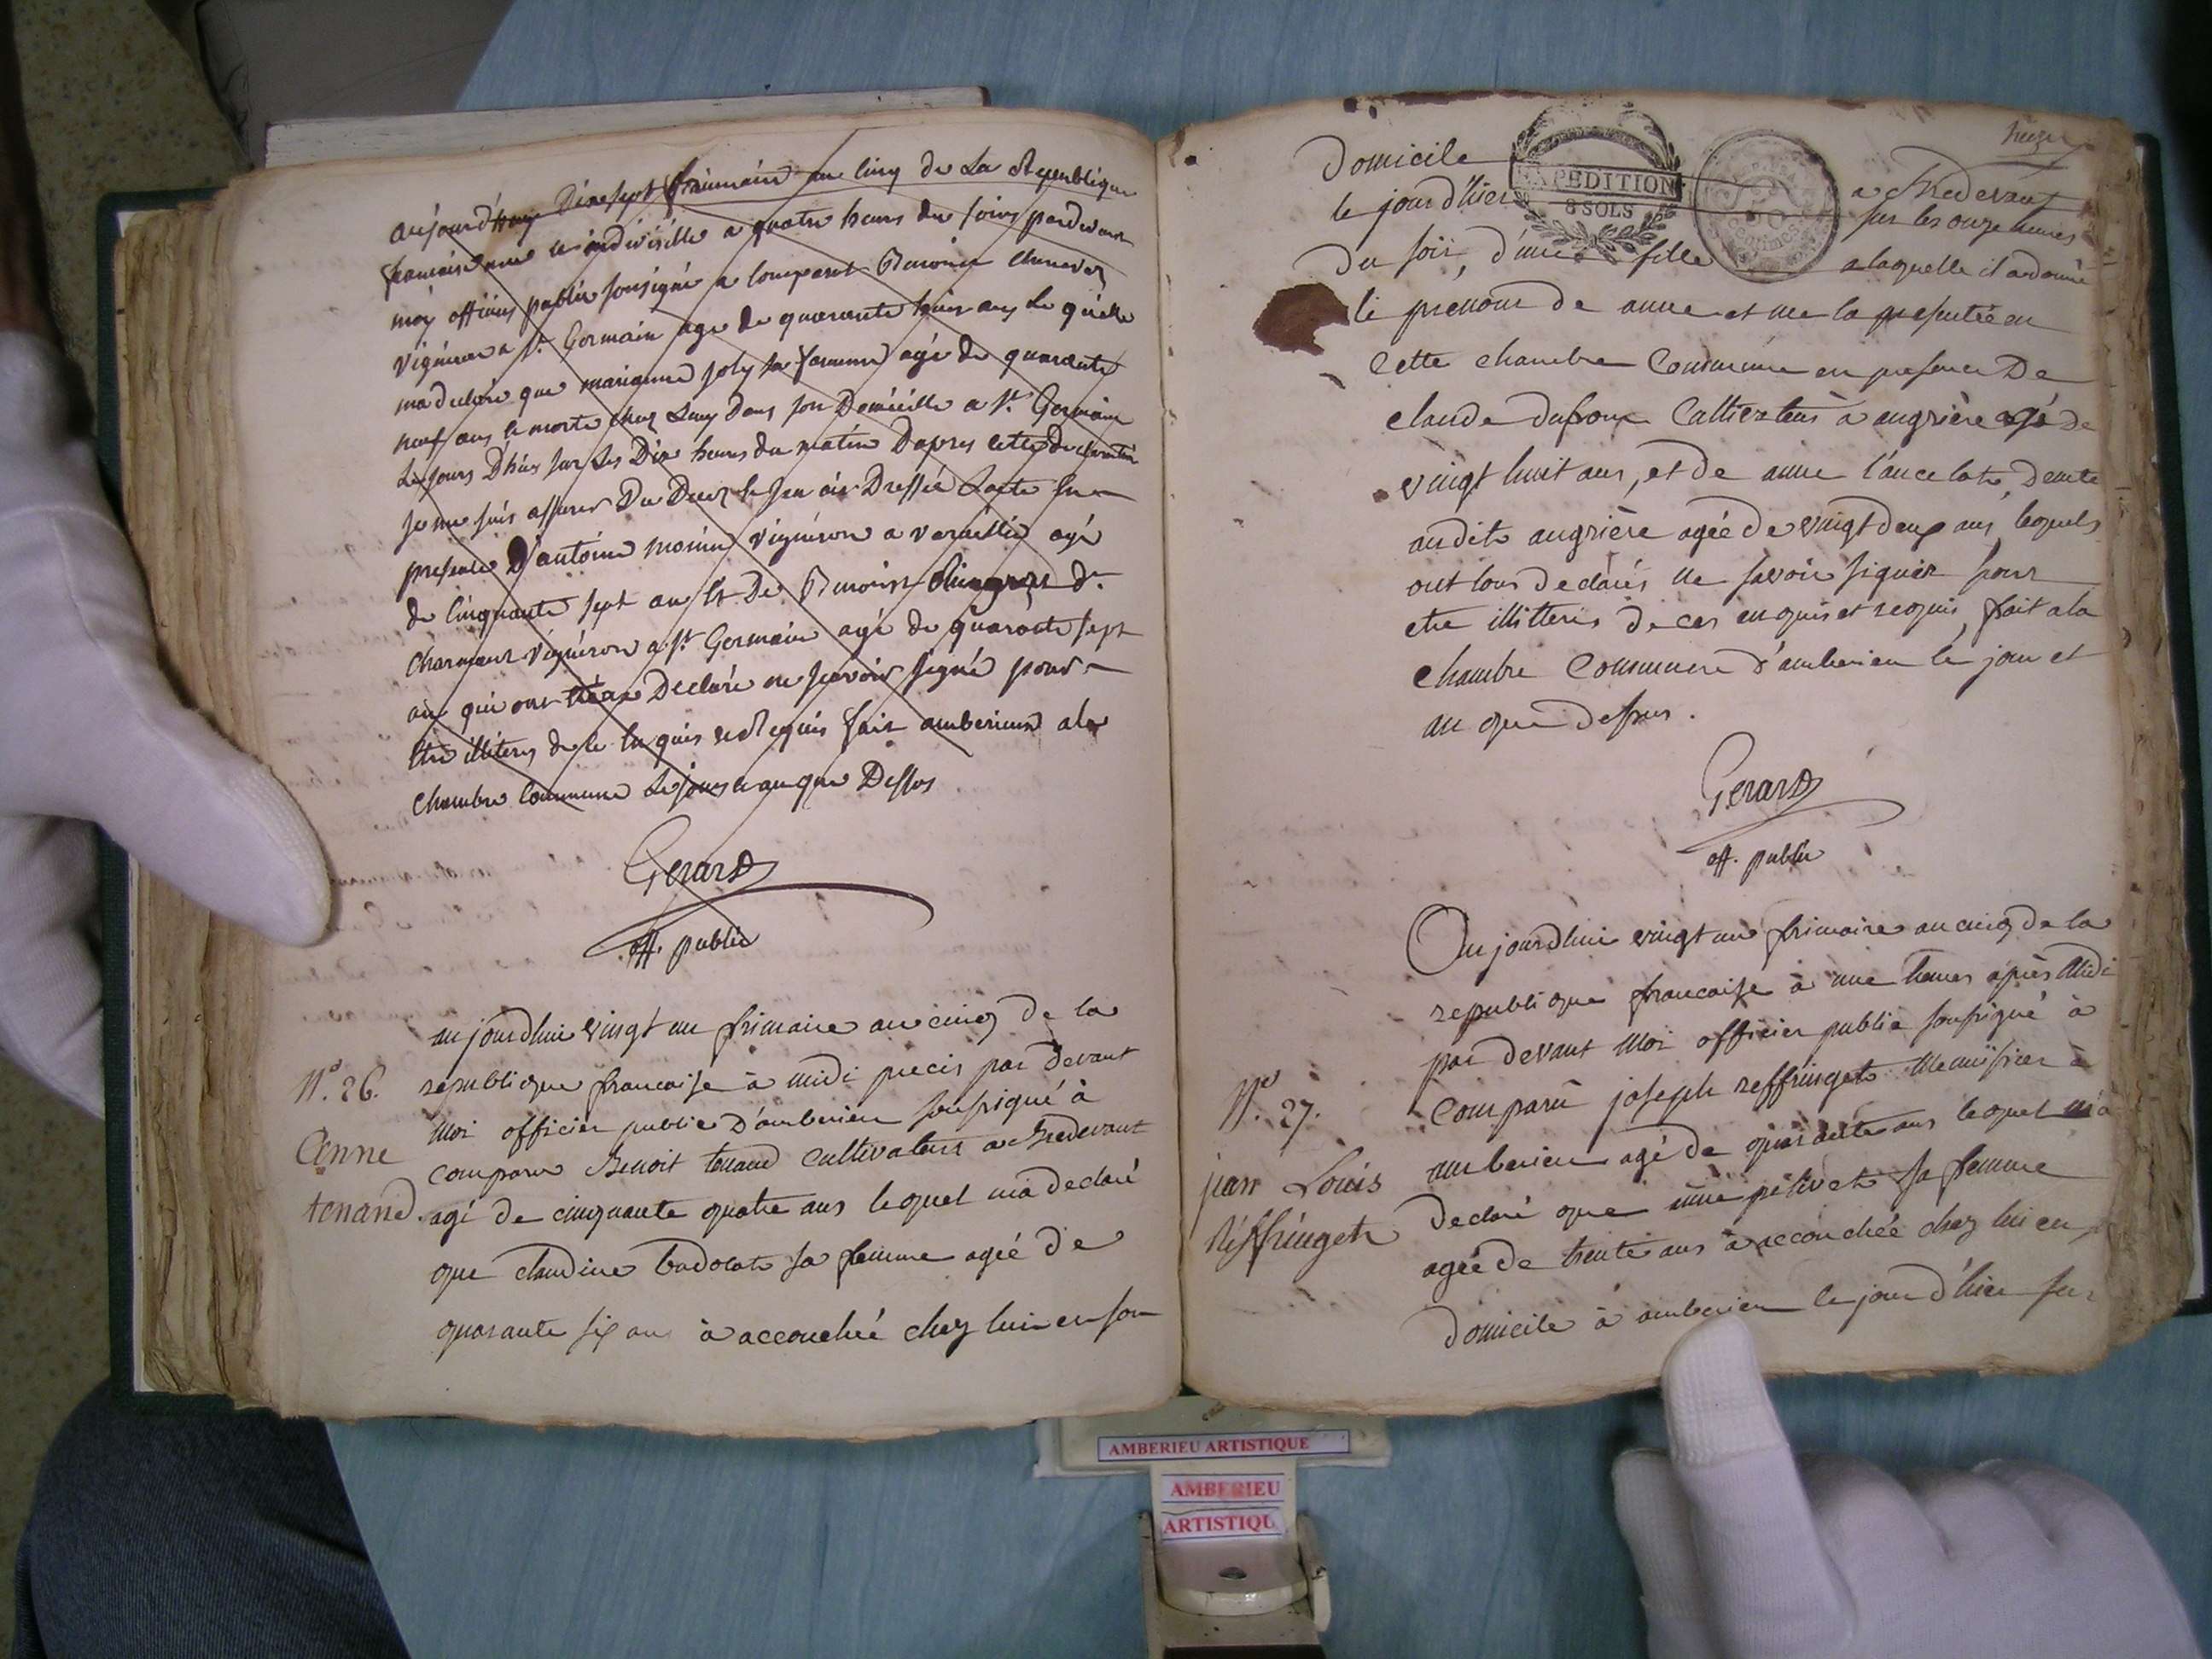 aujourd'huy Dixe sept frimaire an cinq de La Republique
francaise une et indivisible a quatre heures du soir pardevant
moy officier public sousigné a comparut Benoist
vigneron a St. Germain age de quarante huit ans Le quelle
ma declaré que marianne joly sa femme agé de quarante
neuf ans e morte chez Luy dans son Domicille a St. Germain
Le jours D'hier sur les Dix heures du matin D'apres cette declaration
je me suis assurer Du Deces je en ais Dressée Lacte en
presence D'antoine monin vigneron a vareille agé
de cinquante sept an et De Benoist dt.
charmant vigneron a St. Germain agé de quarante sept
an qui ont Declaré ne scavoir signé pour
etre illiterés de ce enquis et Requis fait amberieux a la
chambre Commune Le jours et an que Dessus
Gerard
off. public
aujourdhui vingt un frimaire an cinq de la
N°. 26.
republique francaise à midi precis par devant
moi officier public d'amberieu soussigné à
Anne
tenand.
comparu Benoit tenand cultivateur a Bredevant
agé de cinquante quatre ans lequel m'a declaré
que claudine badolat sa femme ageé de
quarante six ans à accouchée chez lui en son
Domicile a Bredevant
EXPEDITION
8 SOLS
50
centimes
le jour d'hier sur les onze heures
Du soir, d'une fille a laquelle il a donné
le prénom de anne et me la presentée en
cette chambre commune en presence De
claude dufour Cultivateur à angrière agé de
vingt huit ans, et de anne l'ancelot, demte
audit angrière ageé de vingt deux ans, lequels
ont tous declarés ne savoir signer pour
etre illitterés de ces enquis et requis, fait a la
chambre Commune d'amberieu le jour et
an que dessus.
Gerard
off. public
Aujourdhui vingt un frimaire an cinq de la
republique francaise à une heure après Midi
par devant Moi officier public soussigné à
N°. 27.
comparu joseph reffringet Menuisier à
jean Louis
Réffringet
amberieu agé de quarante ans lequel m'a
declaré que petivet sa femme
ageé de trente ans à accouchée chez lui en
domicile à amberieu le jour d'hier sur
AMBERIEU ARTISTIQUE
AMBERIEU
ARTISTIQU